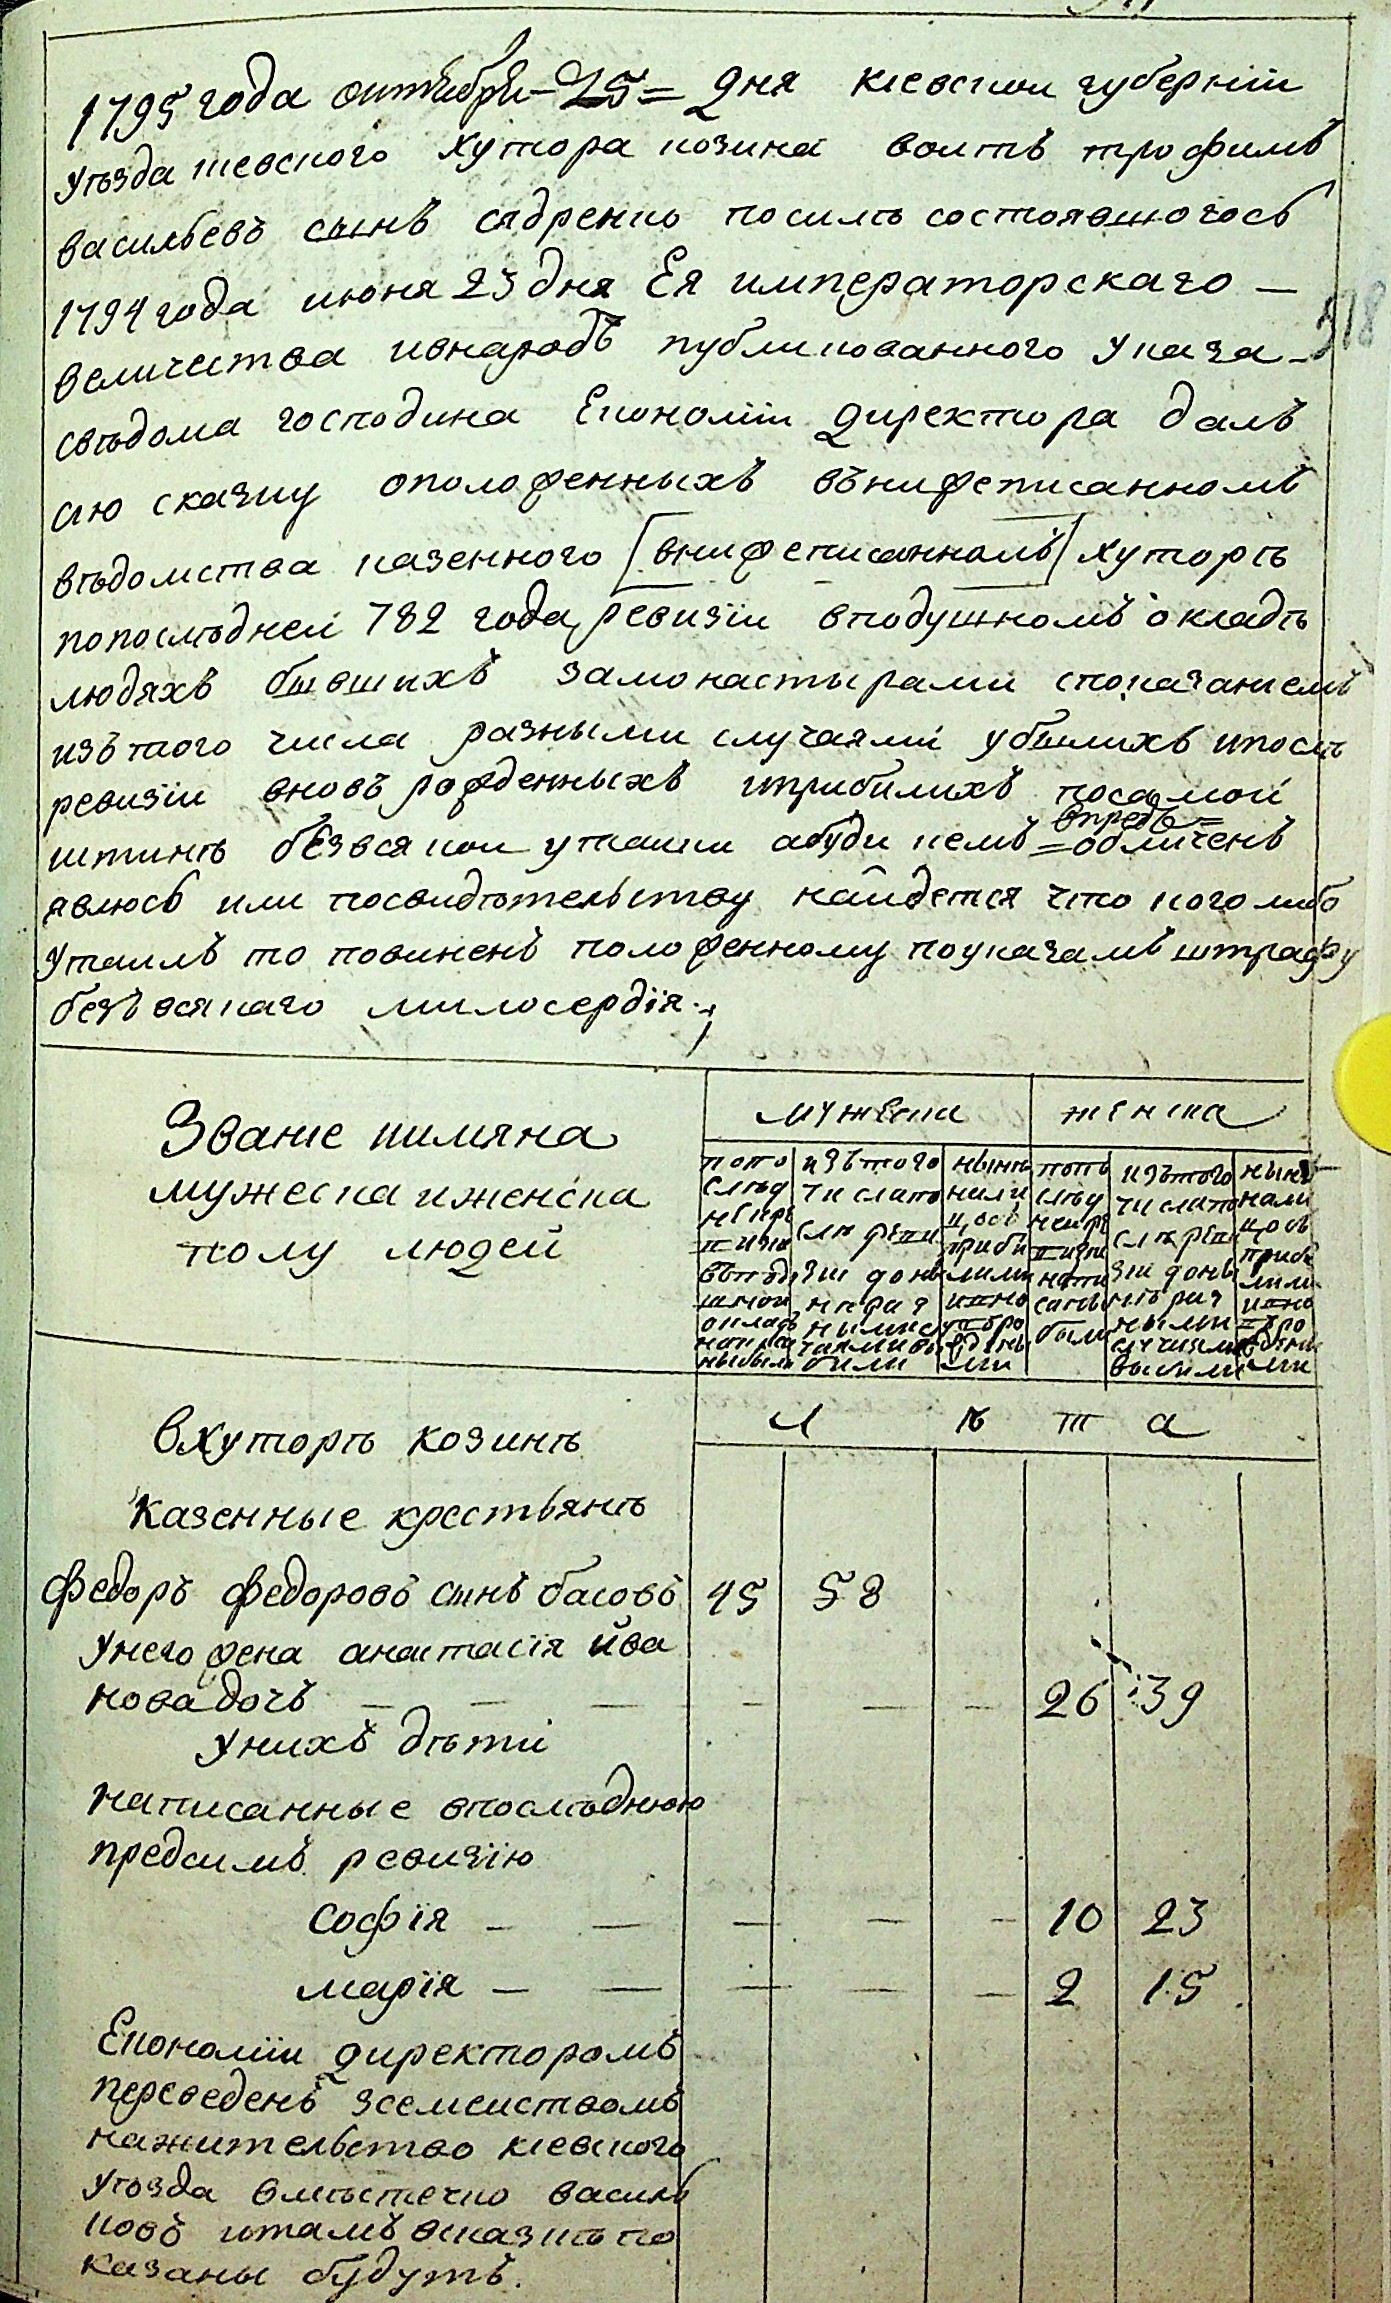 1795 года октября - 25 = дня киевской губернiи
уѣзда киевского хутора козина воитъ трофимъ
васильевъ сынъ сидренко посилѣ состоявшогось
1794 года июня 23 дня Ея императорскаго —
величества ивнародъ публикованного указа —
свѣдома господина Економiи директора далъ
сiю сказку оположенныхъ внижеписанномъ
вѣдомства казенного [внижеписанномъ] хуторѣ
попослѣдней 782 года ревизiи вподушномъ окладѣ
людяхъ бывшихъ замонастырами споказаниемъ
изътого числа разными случаями убылихъ ипослѣ
ревизiи вновъ рожденныхъ иприбилихъ посамой
истинѣ безвсякои утаики абуди кемъ =
впредь =
обличенъ
явлюсь или посвидѣтельству найдется что кого либо
утаилъ то повиненъ положенному поуказамъ штрафу
безъ всякаго милосердiя.;
318
Званiе иимяна
мужеска иженска
полу людей
мужеска
женска
попо
слѣд
ней ре
визи
въпод
шной
оклад
написа
ны были
изътого
числапо
слѣ реви
зiи доны
не раз
ными слу
чаями вы
били
нынѣ
нали
цо съ
приби
лими
ивно
ворожденны
ми
попо
слѣд
ней ре
визiи
напи
саны
были
изътого
числапо
слѣ реви
зiи доны
нѣ раз
ными
случаями
выбили
нынѣ
нали
цо съ
приби
лими
ивно
ворожденны
ми
Л ѣ т а
вхуторѣ козинѣ
казенные крестьянѣ
федоръ федоровъ сынъ басовъ 45 58
унего жена анастасiя ива
нова дочъ — — — — — — 26 39
унихъ дѣти
написанные впослѣднюю
предсимъ ревизiю
софiя — — — — — 10 23
марiя — — — — — 2 15
Економiи директоромъ
переведенъ зсемействомъ
нажительство киевского
уѣзда вмѣстечко василь
ковъ итамъ всказкѣ по
казаны будутъ.